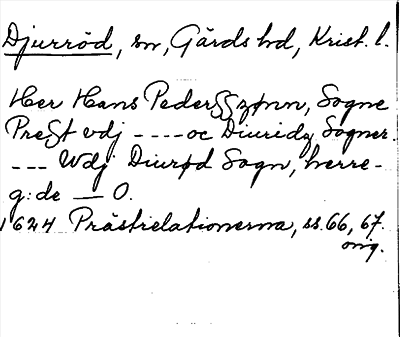 Djurröd, sn, Gärds hd, Krist. l.
Her Hans Pederſſzønn, Sogne
Preſt vdj ----oc Diuridz Sogner.
--- Wdj Diurød Sogn, herre-
g:de — O.
1624 Prästrelationerna, ss. 66, 67.
orig.